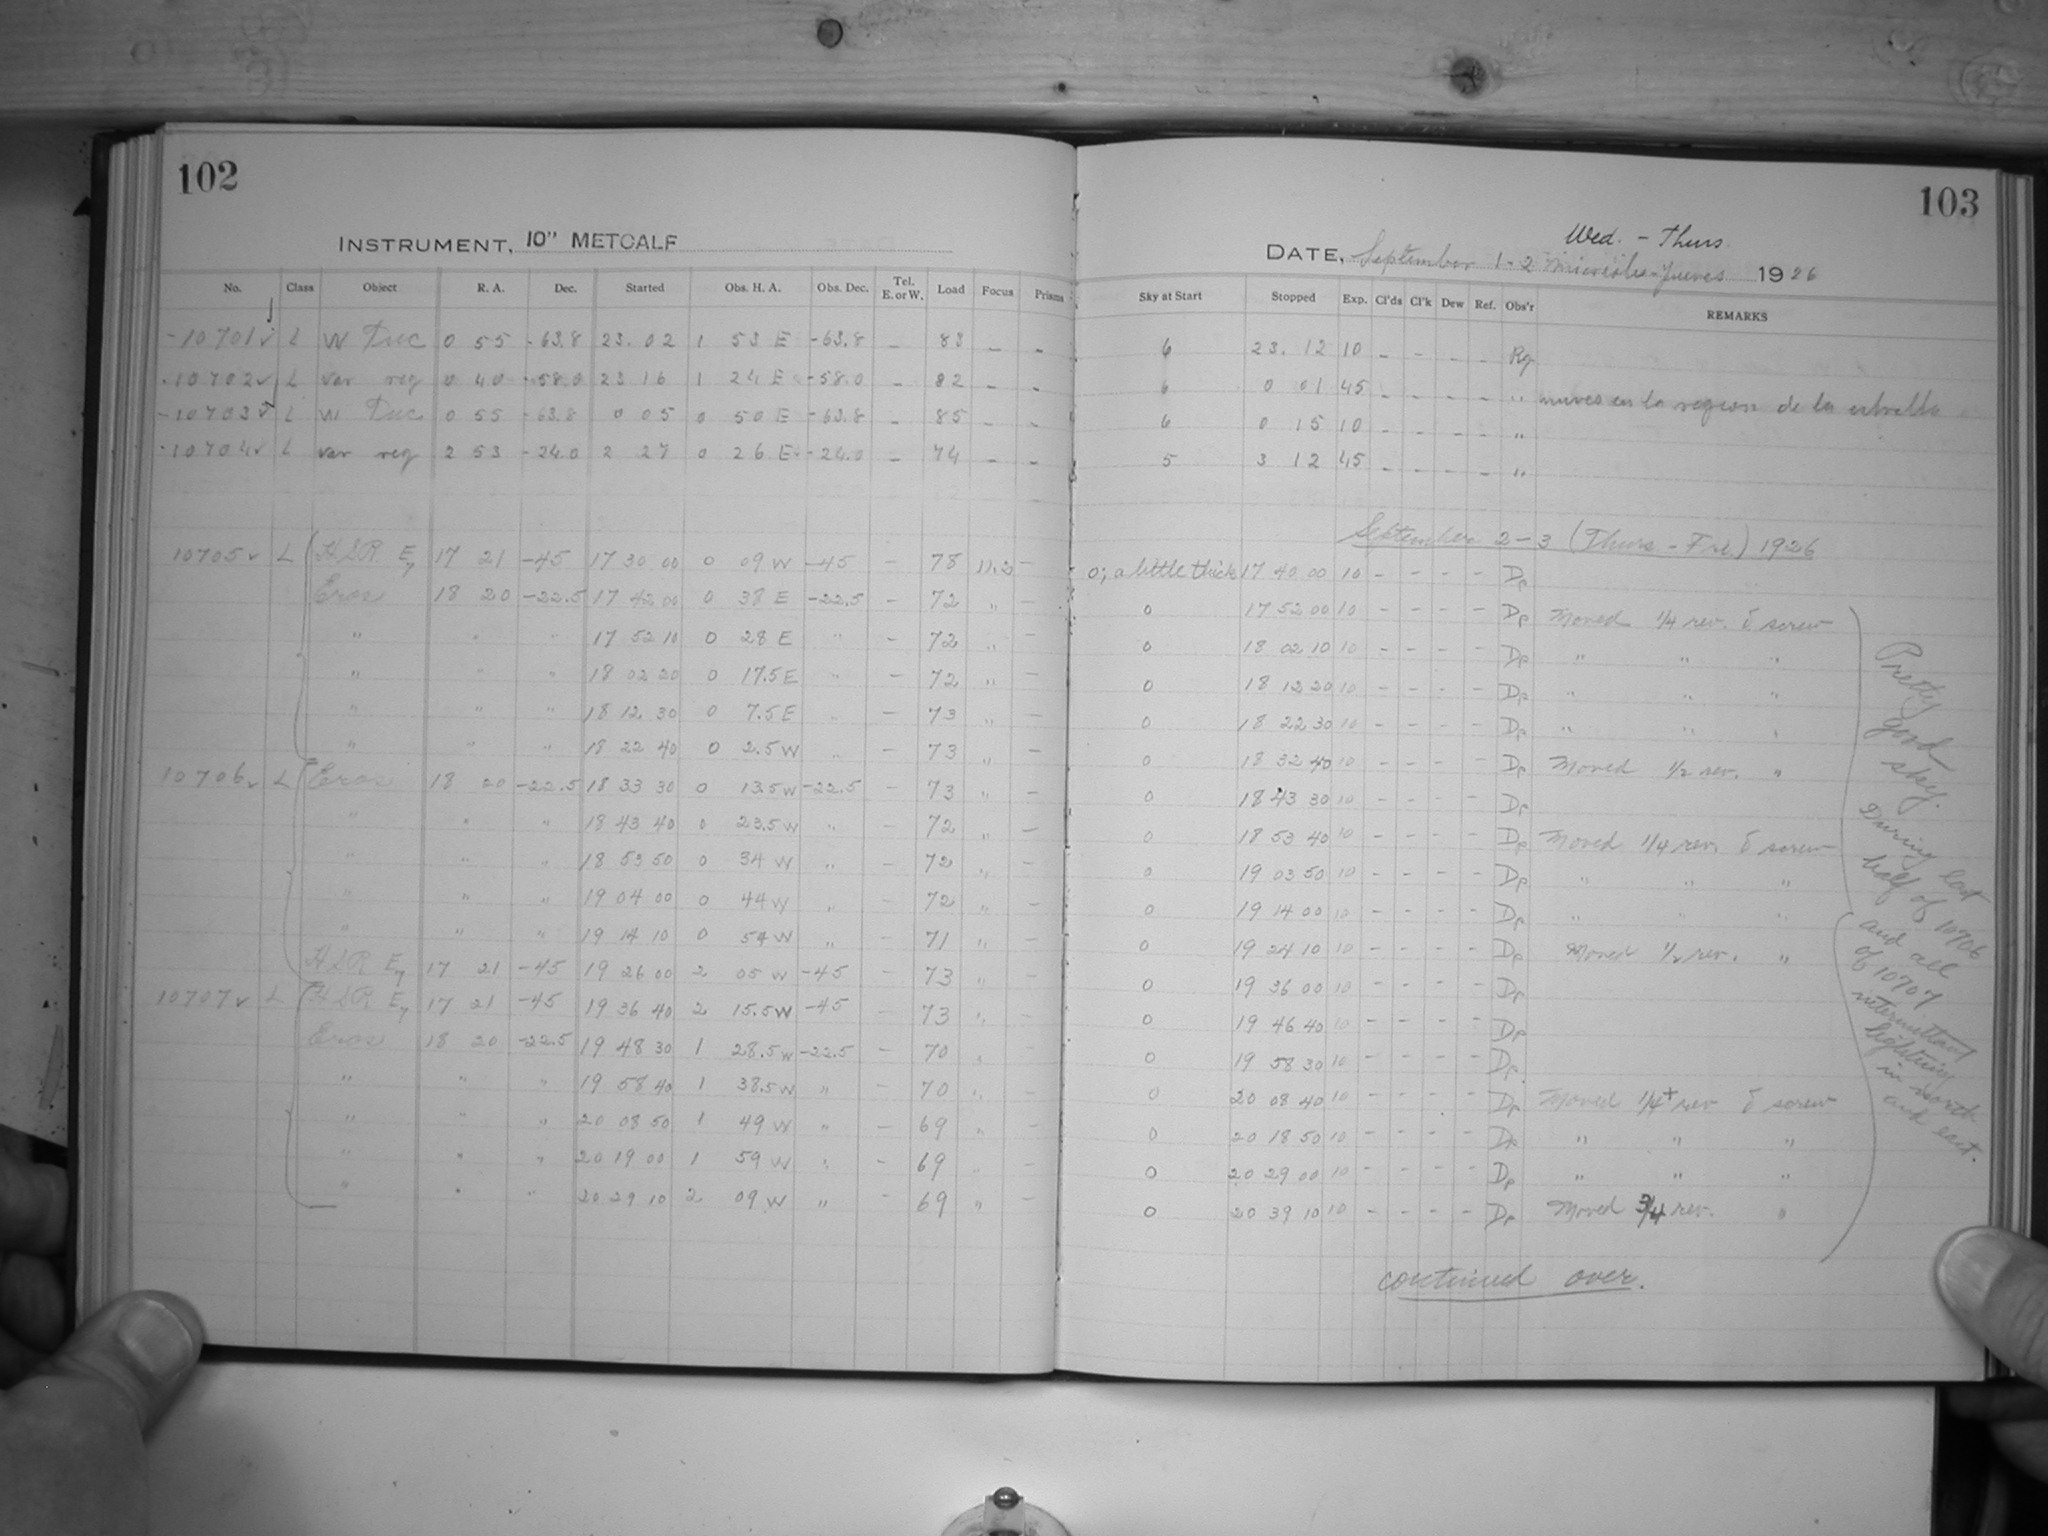 102
INSTRUMENT, 10" METCALF
No. Class Object R. A. Dec. Started Obs. H. A. Obs. Dec. Tel. E. or W. Load Focus Prisms
-10701 ✓ L W Tuc 0 55 -63.8 23. 02 1 53 E -63.8 - 83 - -
-10702 ✓ L var reg 0 40 -58.0 23 16 1 24 E -58.0 - 82 - -
-10703 ✓ L W Tuc 0 55 -63.8 0 05 0 50 E -63.8 - 85 - -
-10704 ✓ L var reg 2 53 -24.0 2 27 0 26 E -24.0 - 74 - -
10705 ✓ L HSR E7 17 21 -45 17 30 00 0 09 W -45 - 78 11.2 -
Eros 18 20 -22.5 17 42 00 0 38 E -22.5 - 72 " -
" " " 17 52 10 0 28 E " - 72 "
" " " 18 02 20 0 17.5 E " - 72 " -
" " " 18 12 30 0 7.5 E " - 73 " -
" " " 18 22 40 0 2.5 W " - 73 " -
10706 ✓ L Eros 18 20 -22.5 18 33 30 0 13.5 W -22.5 - 73 " -
" " " 18 43 40 0 23.5 W " - 72 " -
" " " 18 53 50 0 34 W " - 72 " -
" " " 19 04 00 0 44 W " - 72 " -
" " " 19 14 10 0 54 W " - 71 " -
HSR E7 17 21 -45 19 26 00 2 05 W -45 - 73 " -
10707 ✓ L HSR E7 17 21 -45 19 36 40 2 15.5 W -45 - 73 " -
Eros 18 20 -22.5 19 48 30 1 28.5 W -22.5 - 70 " -
" " " 19 58 40 1 38.5 W " - 70 " -
" " " 20 08 50 1 49 W " - 69 " -
" " " 20 19 00 1 59 W " - 69 " -
" " " 20 29 10 2 09 W " - 69 " -
103
Wed. - Thurs.
DATE, September 1-2 Miercoles-Jueves 1926
Sky at Start Stopped Exp. Cl'ds Cl'k Dew Ref. Obs'r REMARKS
6 23. 12 10 - - - - Rg
6 0 01 45 - - - - " nuves en la region de la estrella
6 0 15 10 - - - - "
5 3 12 45 - - - - "
September 2-3 (Thurs - Fri) 1926
0; a little thick 17 40 00 10 - - - - Dp
0 17 52 00 10 - - - - Dp Moved 1/4 rev. δ screw
0 18 02 10 10 - - - - Dp " " "
0 18 12 20 10 - - - - Dp " " "
0 18 22 30 10 - - - - Dp " " "
0 18 32 40 10 - - - - Dp Moved 1/2 rev. "
0 18 43 30 10 - - - - Dp
0 18 53 40 10 - - - - Dp Moved 1/4 rev. δ screw
0 19 03 50 10 - - - - Dp " " "
0 19 14 00 10 - - - - Dp " " "
0 19 24 10 10 - - - - Dp Moved 1/2 rev. "
0 19 36 00 10 - - - - Dp
0 19 46 40 10 - - - - Dp
0 19 58 30 10 - - - - Dp
0 20 08 40 10 - - - - Dp Moved 1/4+ rev δ screw
0 20 18 50 10 - - - - Dp " " "
0 20 29 00 10 - - - - Dp " " "
0 20 39 10 10 - - - - Dp Moved 3/4 rev. "
Pretty
good
sky.
During last
half of 10706
and all
of 10707
intermittant
lightning
in north
and east.
continued over.